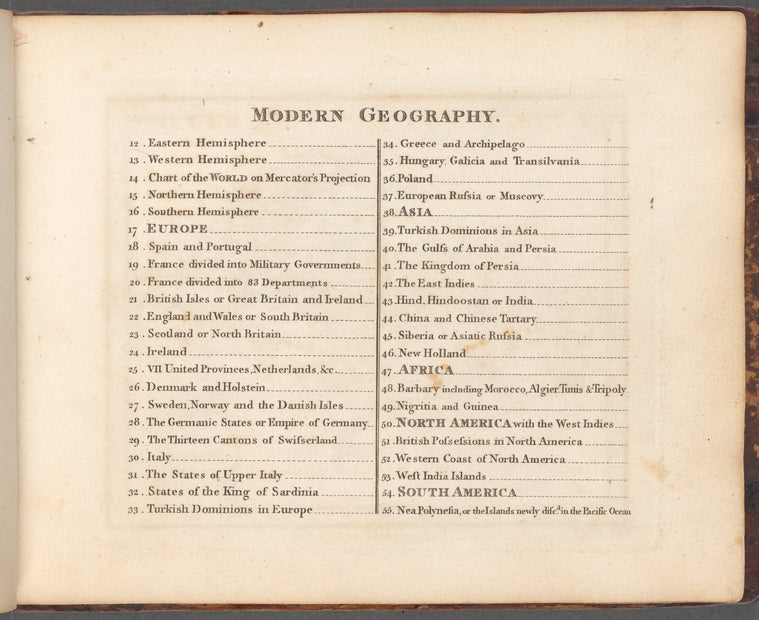 MODERN GEOGRAPHY.
12 . Eastern Hemisphere
13 . Western Hemisphere
14 . Chart of the WORLD on Mercator's Projection
15 . Northern Hemisphere
16 . Southern Hemisphere
17 . EUROPE
18 . Spain and Portugal
19 . France divided into Military Governments
20 . France divided into 83 Departments
21 . British Isles or Great Britain and Ireland
22 . England and Wales or South Britain
23 . Scotland or North Britain
24 . Ireland
25 . VII United Provinces, Netherlands, &c.
26 . Denmark and Holstein
27 . Sweden, Norway and the Danish Isles
28 . The Germanic States or Empire of Germany
29 . The Thirteen Cantons of Swifserland
30 . Italy
31 . The States of Upper Italy
32 . States of the King of Sardinia
33 . Turkish Dominions in Europe
34. Greece and Archipelago
35. Hungary, Galicia and Transilvania
36. Poland
37. European Rufsia or Muscovy
38. ASIA
39. Turkish Dominions in Asia
40. The Gulfs of Arabia and Persia
41. The Kingdom of Persia
42. The East Indies
43. Hind, Hindoostan or India
44. China and Chinese Tartary
45. Siberia or Asiatic Rufsia
46. New Holland
47. AFRICA
48. Barbary including Morocco, Algier, Tunis & Tripoly
49. Nigritia and Guinea
50. NORTH AMERICA with the West Indies
51 . British Pofsefsions in North America
52. Western Coast of North America
53. West India Islands
54. SOUTH AMERICA
55. Nea Polynesia, or the Islands newly disc.d in the Pacific Ocean